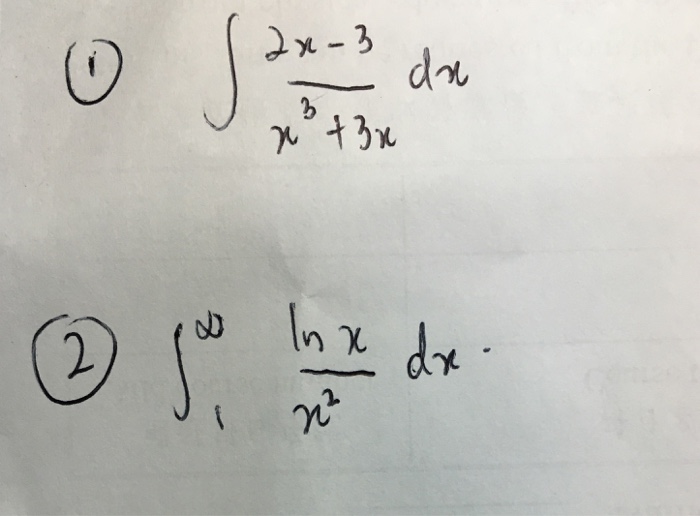 ① ∫ (2x - 3)/(x³ + 3x) dx
② ∫₁^∞ (ln x)/(x²) dx.